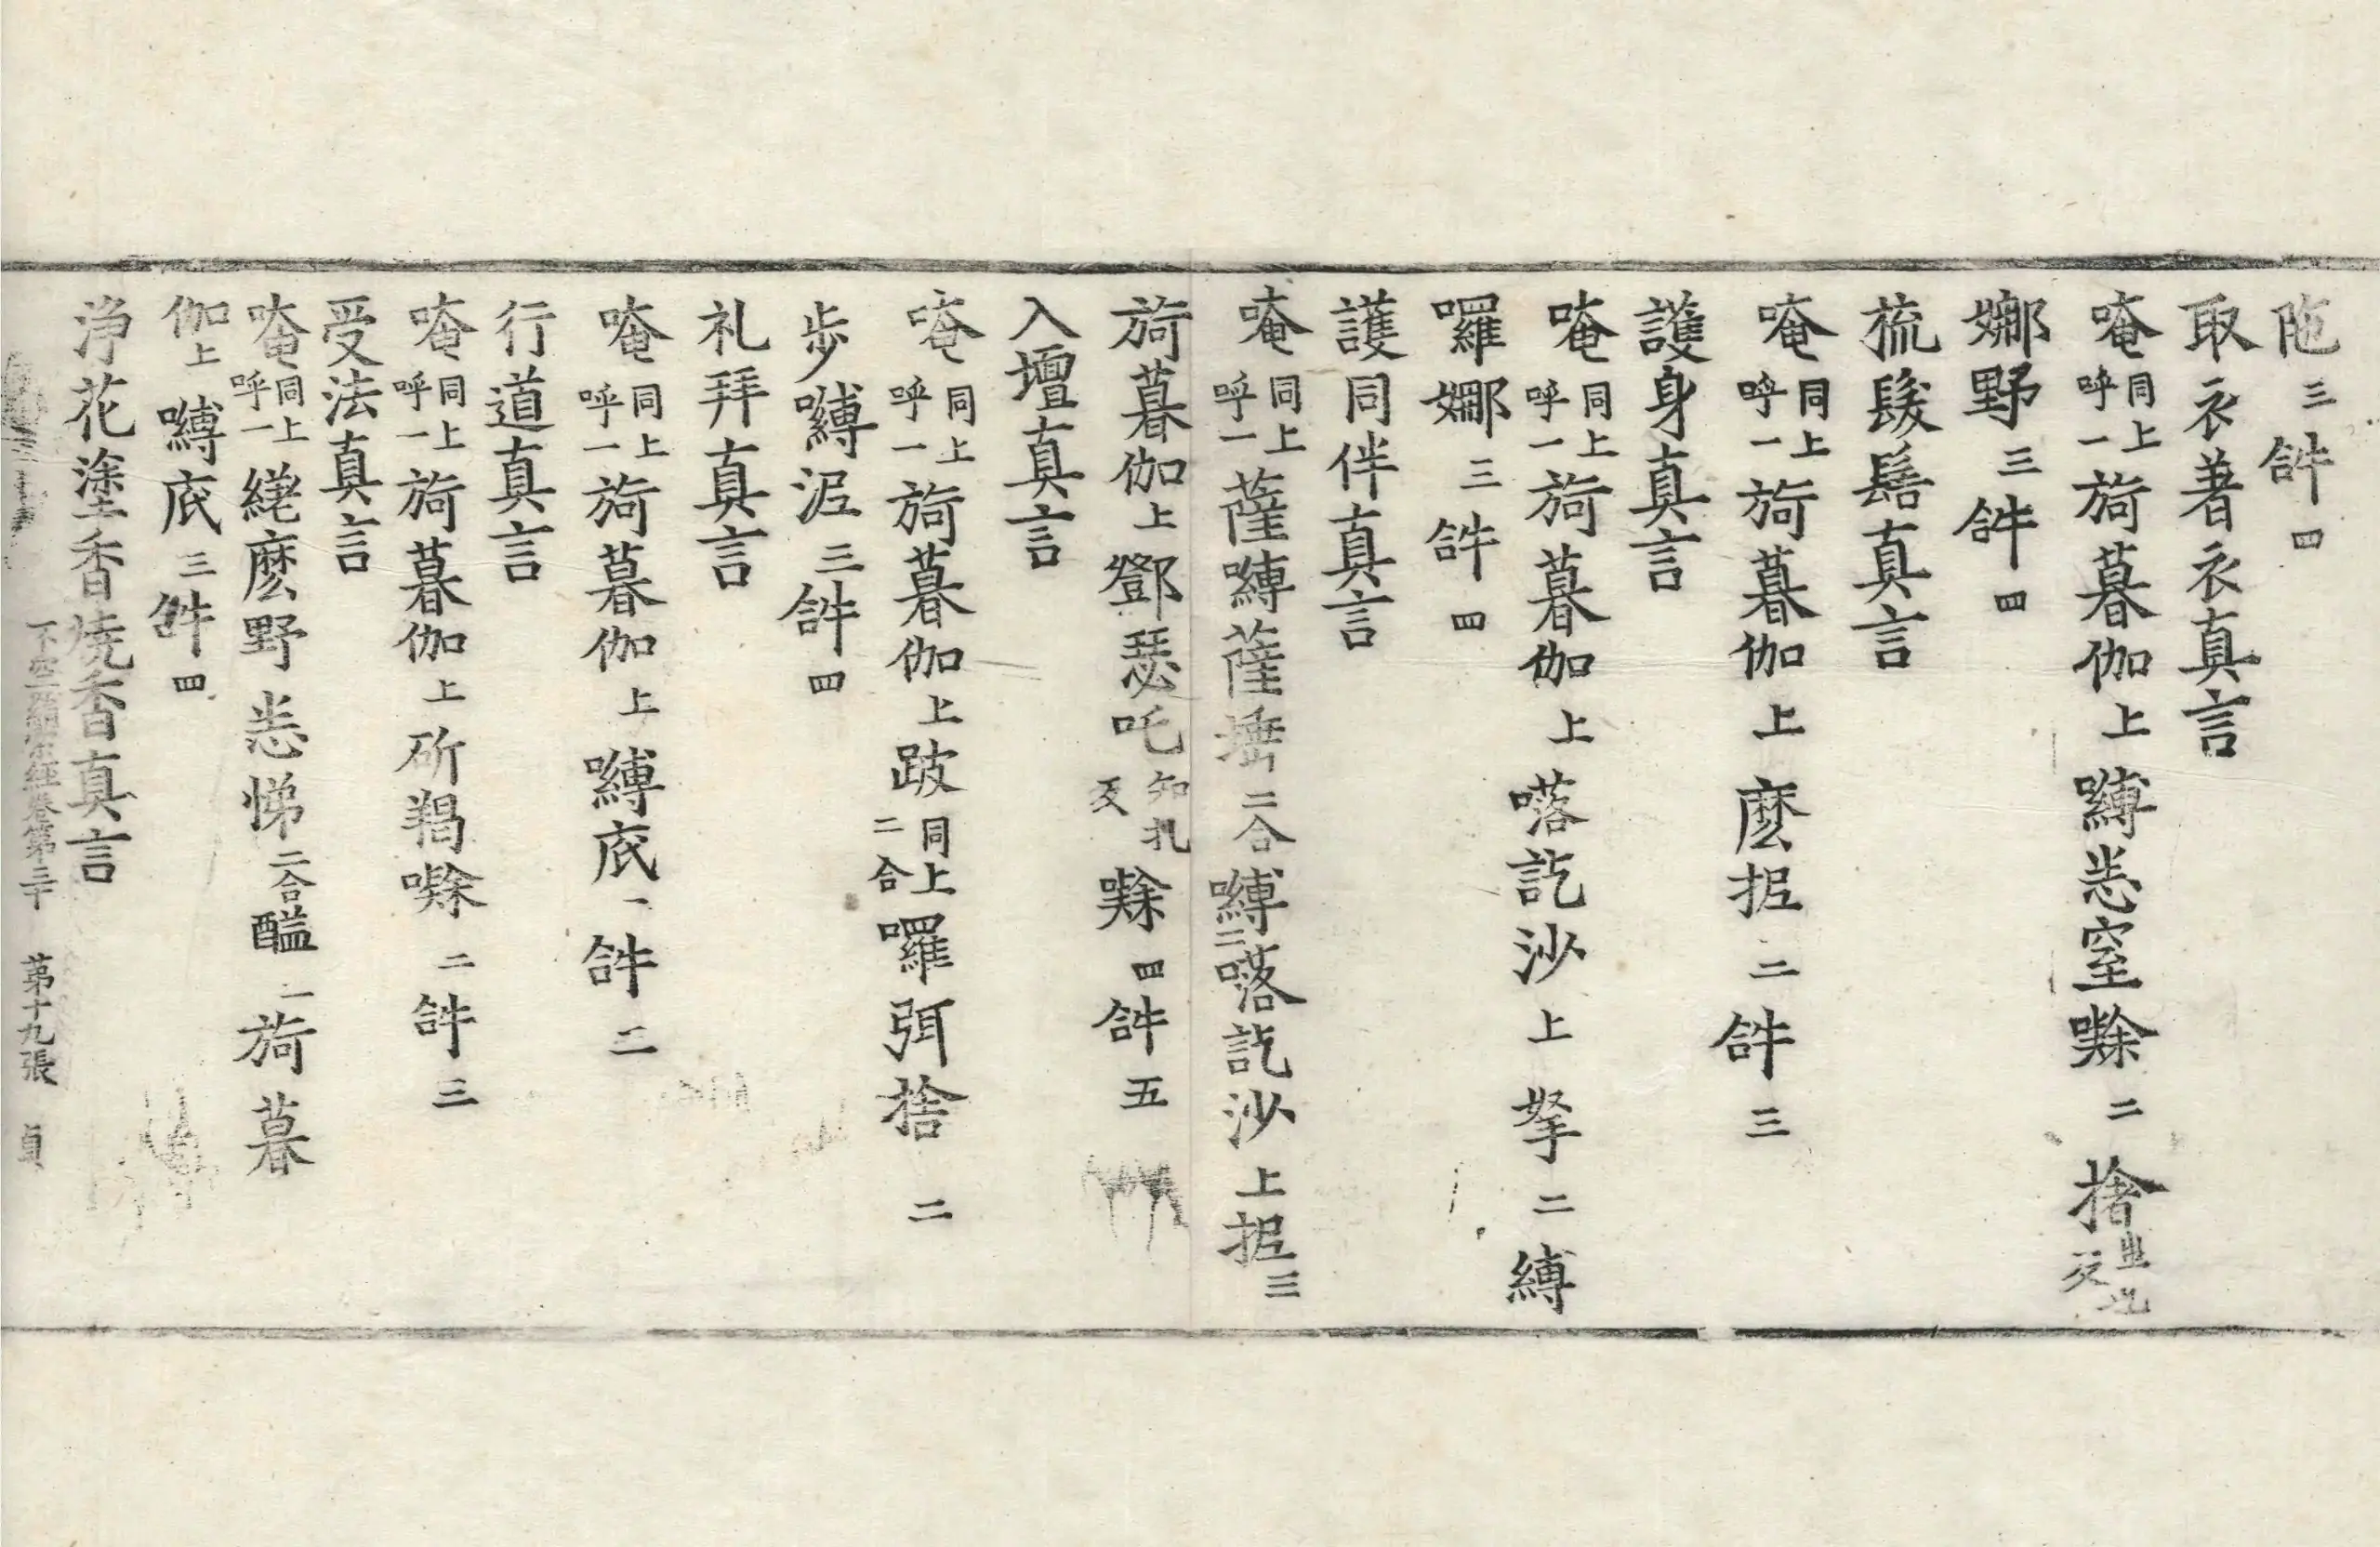 陁三𤙖四
取衣著衣真言
唵同上呼一旖暮伽上嚩悉窒㘑二撦
娜野三𤙖四
梳髮髻真言
唵同上呼一旖暮伽上麽抳二𤙖三
護身真言
唵同上呼一旖暮伽上𠸪訖沙上拏二縛
囉娜三𤙖四
護同伴真言
唵同上呼一薩嚩薩埵二合嚩二𠸪訖沙上抳三
旖暮伽上鄧瑟吒知礼反㘑四𤙖五
入壇真言
唵同上呼一旖暮伽上跛同上二合囉弭捨二
步嚩泥三𤙖四
礼拜真言
唵同上呼一旖暮伽上嚩底一𤙖二
行道真言
唵同上呼一旖暮伽上斫羯㘑二𤙖三
受法真言
唵同上呼一縒麽野悉悌二合醯一旖暮
伽上嚩底三𤙖四
淨花塗香燒香真言
下空羂索經卷第二十 第十九張 貞